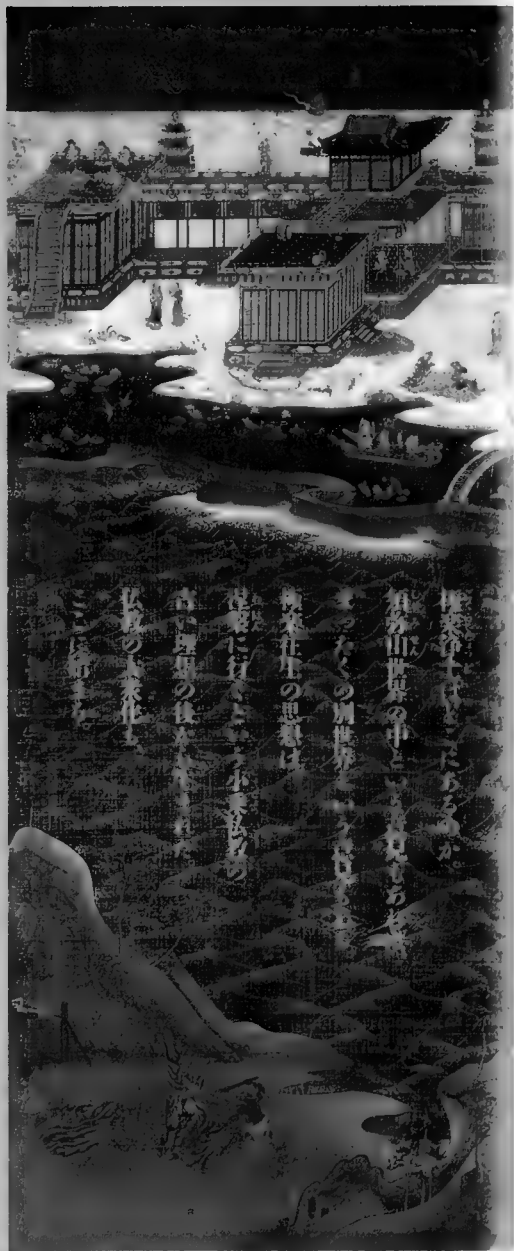 極楽浄土はどこにあるのか。
須弥山世界の中という意見もあれば
まったくの別世界という
極楽往生の思想は
に行くという小乗仏教の
古い理想の後に
仏教の大衆化も
ここに始まる。